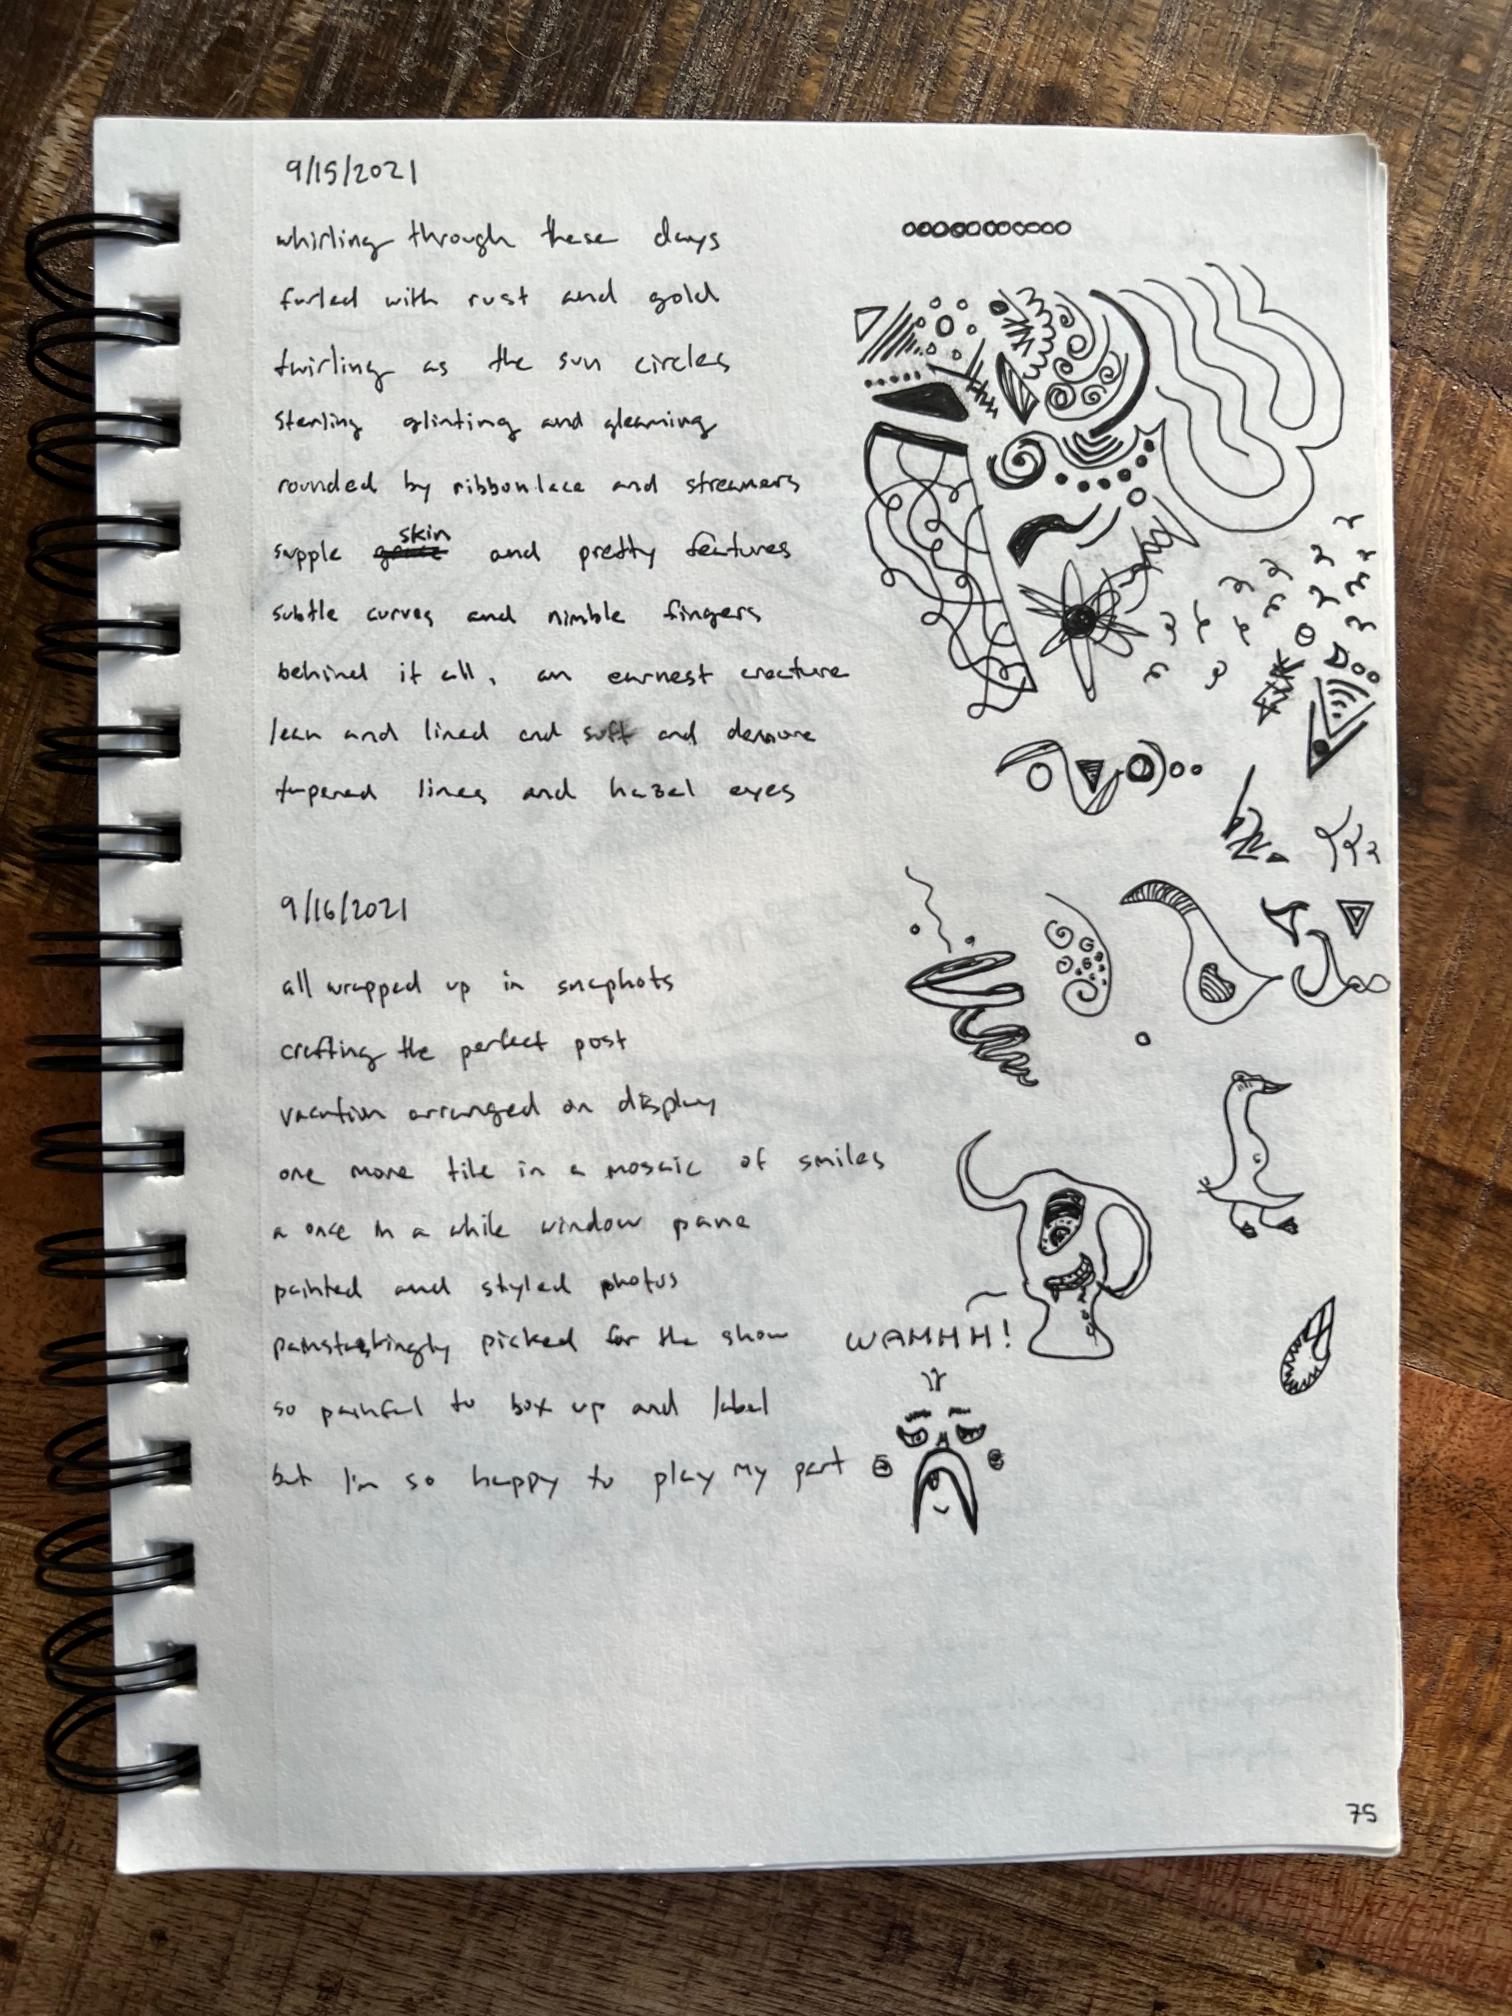 9/15/2021
whirling through these days
furled with rust and gold
twirling as the sun circles
sterling glinting and gleaming
rounded by ribbonlace and streamers
supple skin and pretty features
subtle curves and nimble fingers
behind it all, an earnest creature
lean and lined and soft and demure
tapered lines and hazel eyes
9/16/2021
all wrapped up in snaphots
crafting the perfect post
vacation arranged on display
one more tile in a mosaic of smiles
a once in a while window pane
painted and styled photos
painstakingly picked for the show
WAHHH!
so painful to box up and label
but I'm so happy to play my part
75